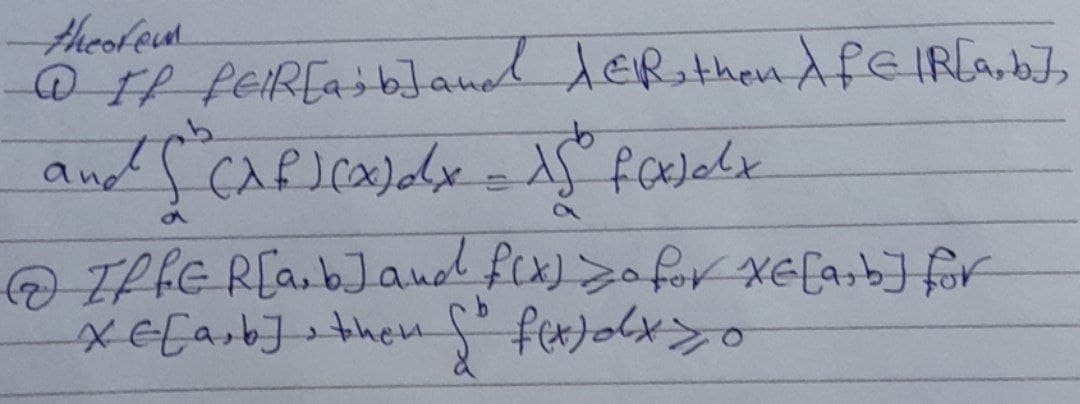 theorem
① If f∈IR[a;b] and λ∈R, then λf∈IR[a,b],
and ∫ₐᵇ (λf)(x)dx = λ∫ₐᵇ f(x)dx
② If f∈R[a,b] and f(x)≥0 for x∈[a,b] for
x∈[a,b], then ∫ₐᵇ f(x)dx≥0